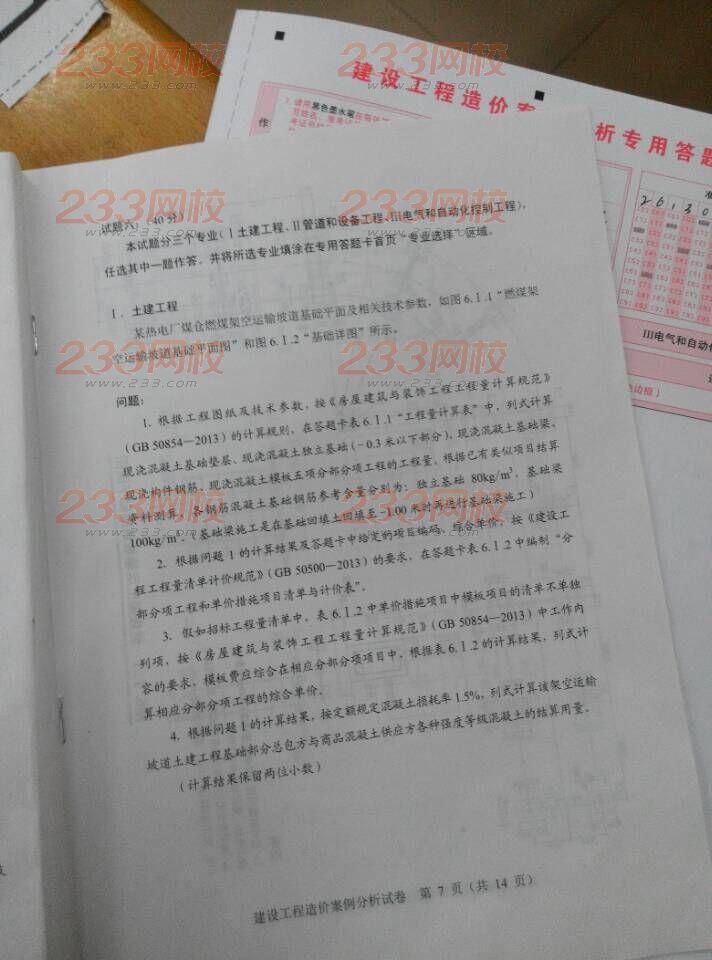 233网校
www.233.com
233网校
www.233.com
建设工程造价案
析专用答题
作
1.请用黑色墨水笔在每张
准
2 6 1 3 0
III电气和自动化
色边框)
233网校
www.233.com
233网校
www.233.com
试题六：(40分)
本试题分三个专业(I土建工程、II管道和设备工程、III电气和自动化控制工程)，
任选其中一题作答。并将所选专业填涂在专用答题卡首页“专业选择”区域。
I．土建工程
某热电厂煤仓燃煤架空运输坡道基础平面及相关技术参数，如图6.1.1“燃煤架
空运输坡道基础平面图”和图6.1.2“基础详图”所示。
233网校
www.233.com
233网校
www.233.com
问题：
1. 根据工程图纸及技术参数，按《房屋建筑与装饰工程工程量计算规范》
(GB 50854—2013)的计算规则，在答题卡表6.1.1“工程量计算表”中，列式计算
现浇混凝土基础垫层、现浇混凝土独立基础(-0.3米以下部分)、现浇混凝土基础梁、
现浇构件钢筋、现浇混凝土模板五项分部分项工程的工程量。根据已有类似项目结算
资料测算，各钢筋混凝土基础钢筋参考含量分别为：独立基础 80kg/m³，基础梁
100kg/m³。(基础梁施工是在基础回填土回填至-1.00米时再进行基础梁施工)
233网校
www.233.com
233网校
www.233.com
2. 根据问题1的计算结果及答题卡中给定的项目编码、综合单价，按《建设工
程工程量清单计价规范》(GB 50500—2013)的要求，在答题卡表6.1.2中编制“分
部分项工程和单价措施项目清单与计价表”。
3. 假如招标工程量清单中，表6.1.2中单价措施项目中模板项目的清单不单独
列项，按《房屋建筑与装饰工程工程量计算规范》(GB 50854—2013)中工作内
容的要求，模板费应综合在相应分部分项项目中，根据表6.1.2的计算结果，列式计
算相应分部分项工程的综合单价。
4. 根据问题1的计算结果，按定额规定混凝土损耗率1.5%，列式计算该架空运输
坡道土建工程基础部分总包方与商品混凝土供应方各种强度等级混凝土的结算用量。
(计算结果保留两位小数)
建设工程造价案例分析试卷 第 7 页(共 14 页)